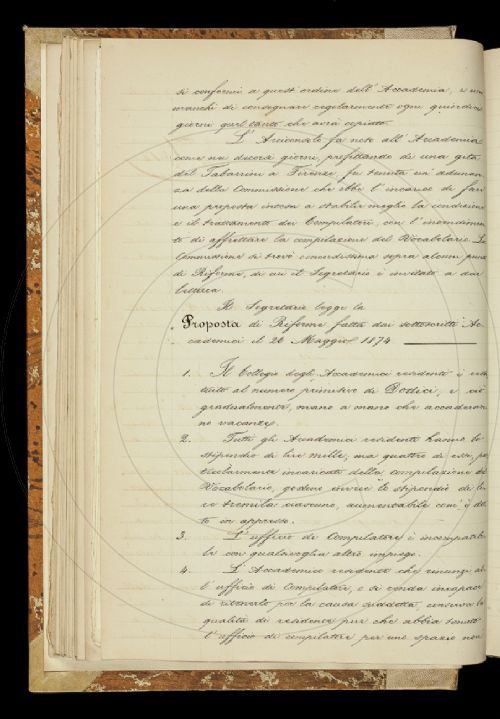 si conformi a quest'ordine dell'Accademia, e non
manchi di consegnare regolarmente ogni quindici
giorni quel tanto che avrà copiato.
L'Arciconsolo fa noto all'Accademia
come nei decorsi giorni, profittando di una gita
del Tabarrini a Firenze, fu tenuta un'adunan-
za della Commissione che ebbe l'incarico di fare
una proposta intesa a stabilir meglio la condizione
e il trattamento dei Compilatori, con l'intendimen
to di affrettare la compilazione del Vocabolario. La
Commissione si trovò concordissima sopra alcuni punti
di Riforme, di cui il Segretario è invitato a dar
lettura.
Il Segretario legge la
Proposta di Riforme fatta dai sottoscritti Ac-
cademici il 26 Maggio 1874
1. Il Collegio degli Accademici residenti è resti
tuito al numero primitivo di Dodici, e ciò
gradualmente, mano a mano che accaderan
no vacanze.
2. Tutti gli Accademici residenti hanno lo
stipendio di lire mille; ma quattro di essi, par
ticolarmente incaricati della compilazione del
Vocabolario, godono invece lo stipendio di li
re tremila ciascuno, aumentabile com'è det
to in appresso.
3. L'ufficio di Compilatore è incompatibi
le con qualsivoglia altro impiego.
4. L'Accademico residente che rinunzi al
l'ufficio di Compilatore, o si renda incapace
di ritenerlo per la causa suddetta, conserva la
qualità di residente pur che abbia tenuto
l'ufficio di compilatore per uno spazio non